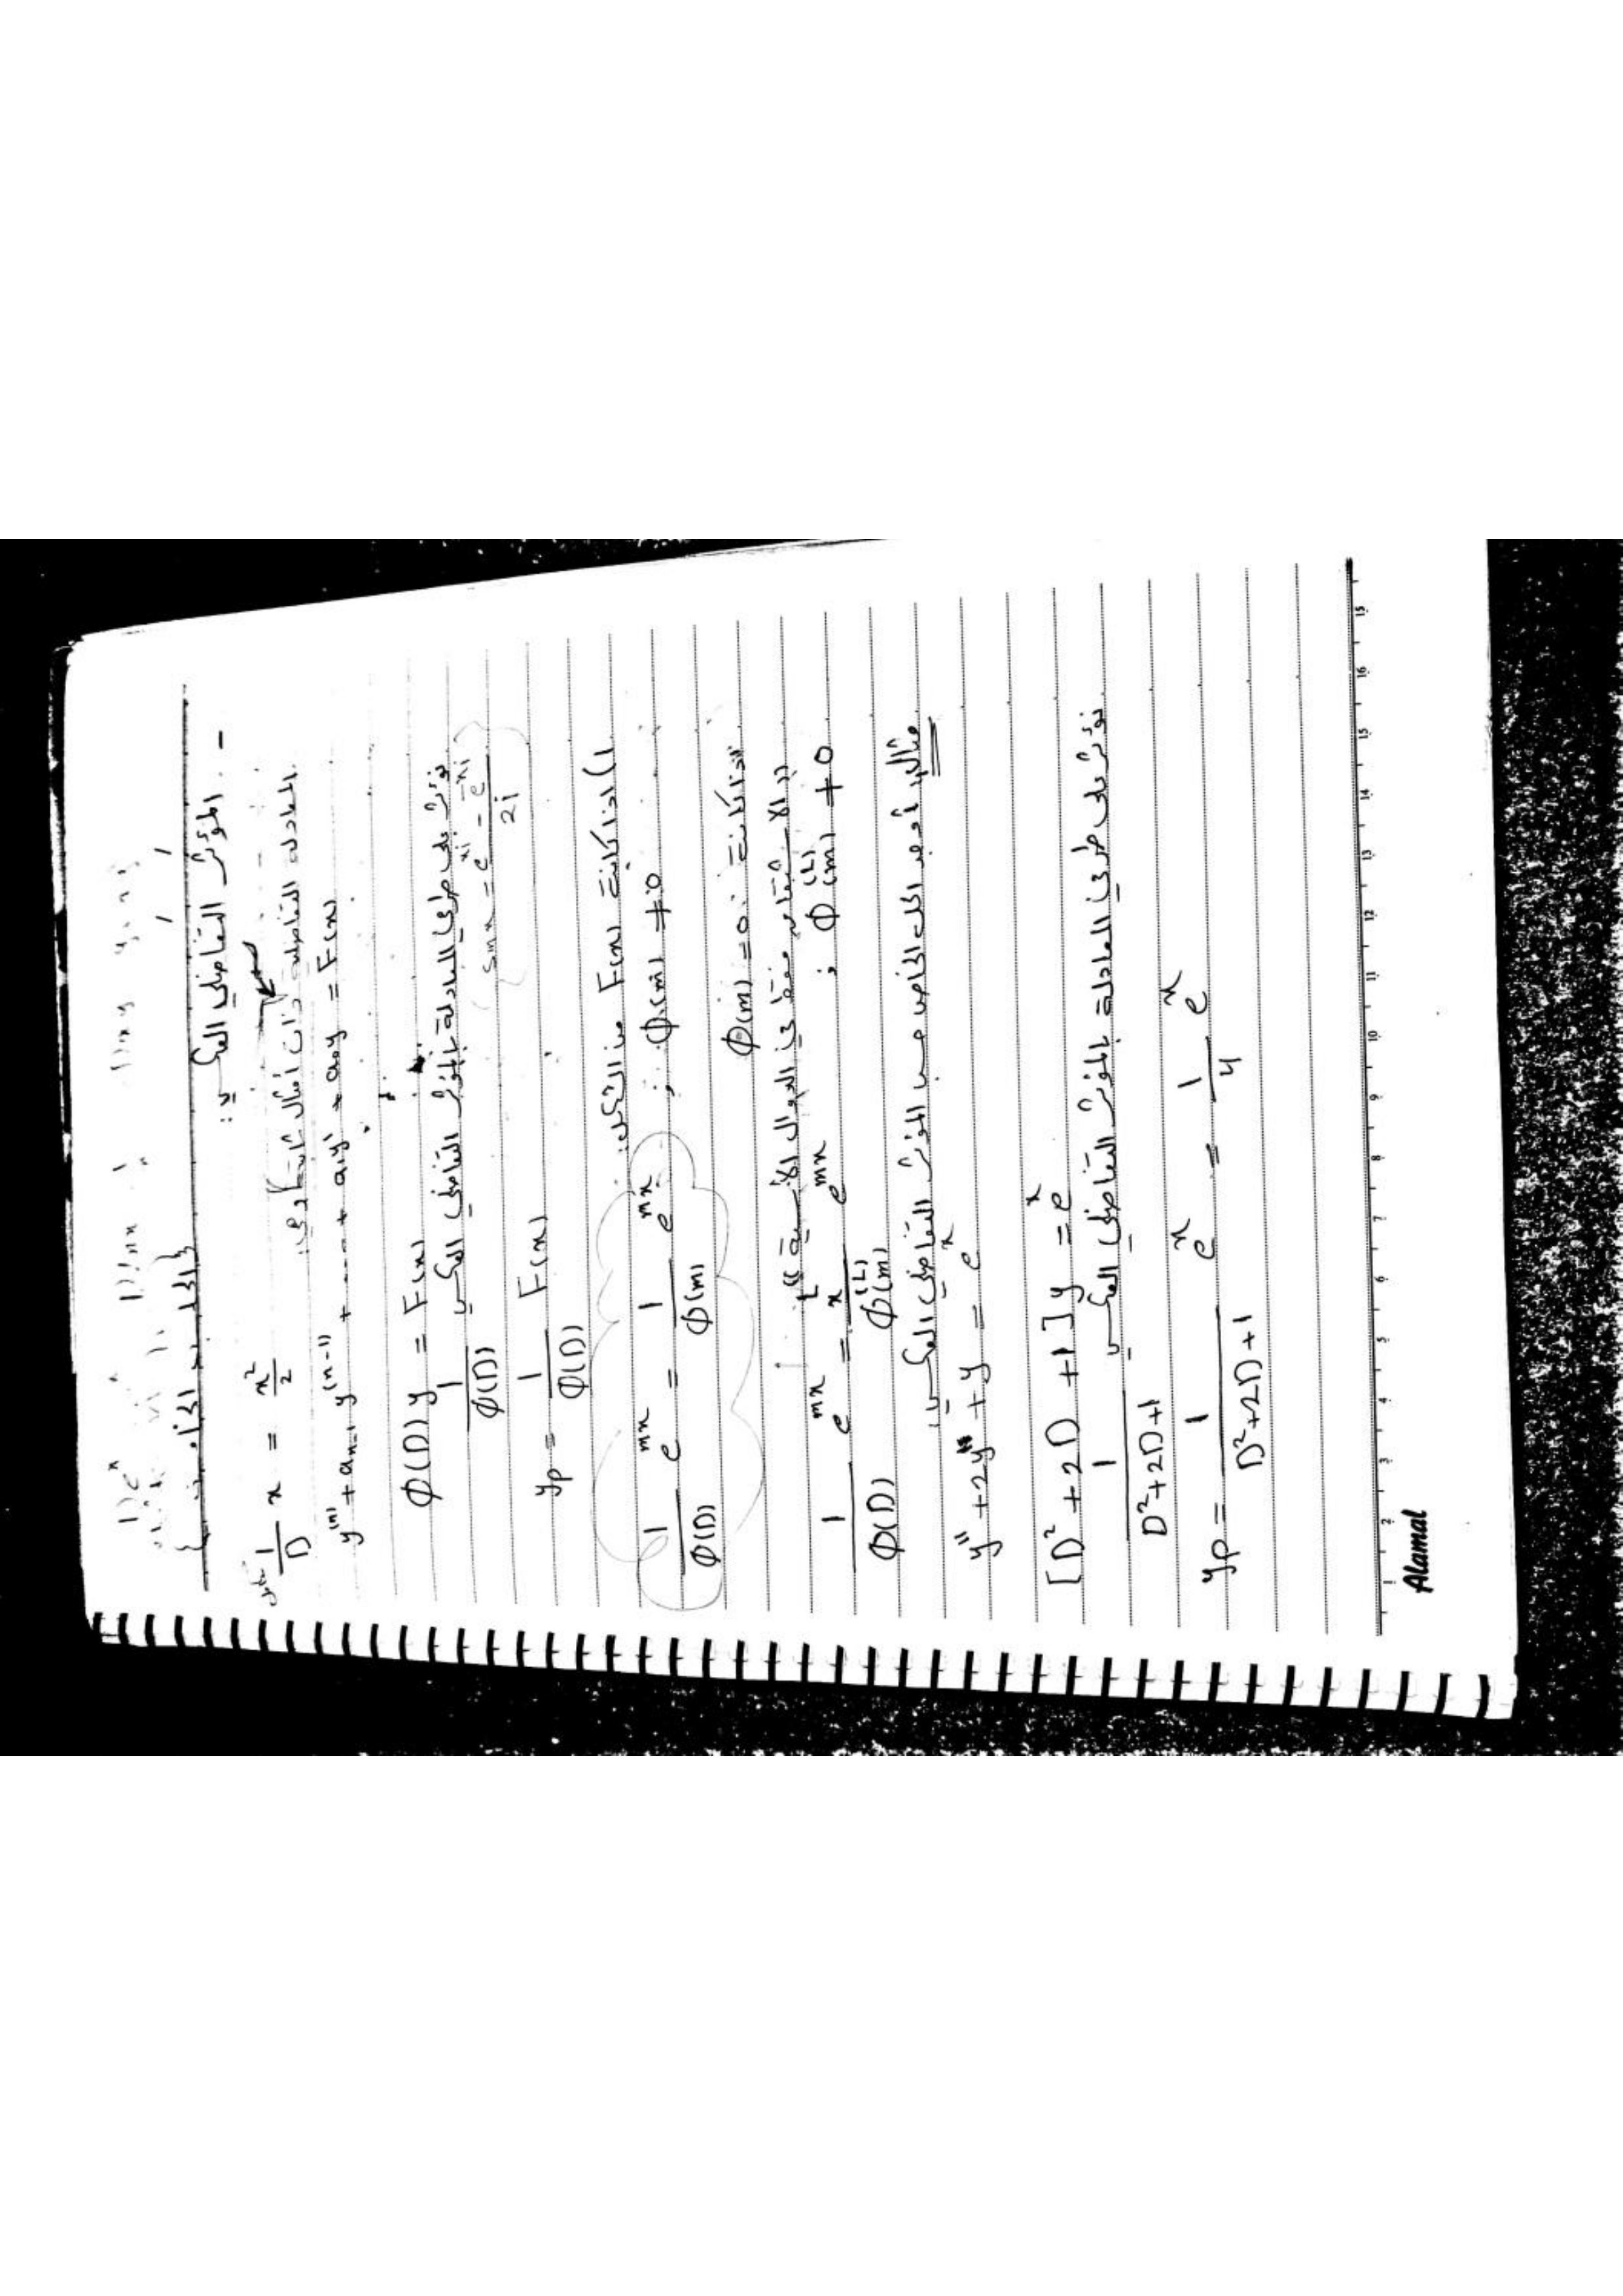 { الحل بـ
- المؤثر التفاضلي العكسي:
1/D x = x²/2
المعادلة التفاضلية ذات أمثال ثابتة
y⁽ⁿ⁾ + aₙ₋₁ y⁽ⁿ⁻¹⁾ + ---- + a₁y' + a₀y = F(x)
φ(D) y = F(x)
نؤثر على طرفي المعادلة بالمؤثر التفاضلي العكسي 1/φ(D)
sin x = (e^{xi} - e^{-xi})/2i
yp = 1/φ(D) F(x)
1) اذا كانت F(x) من الشكل:
1/φ(D) e^{mx} = 1/φ(m) e^{mx} ; φ(m) ≠ 0
اذا كانت φ(m) = 0
فقط في الدوال الأسية"
1/φ(D) e^{mx} = x^L/φ^{(L)}(m) e^{mx} ; φ^{(L)}(m) ≠ 0
مثال: أوجد الحل الخاص حسب المؤثر التفاضلي العكسي:
y'' + 2y' + y = e^x
[D² + 2D + 1] y = e^x
نؤثر على طرفي المعادلة بالمؤثر التفاضلي العكسي 1/(D²+2D+1)
yp = 1/(D²+2D+1) e^x = 1/4 e^x
1 2 3 4 5 6 7 8 9 10 11 12 13 14 15 16 15
Alamal